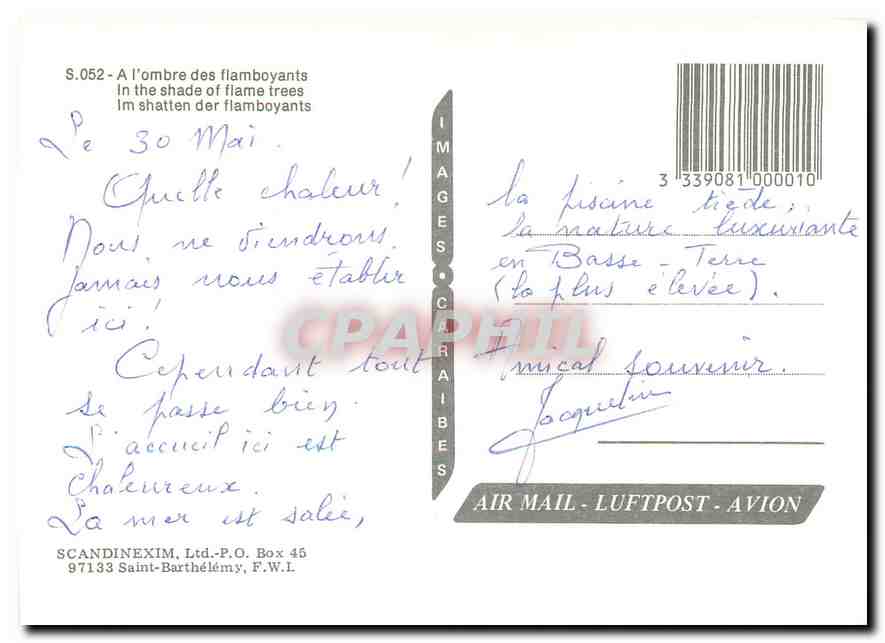 S.052 - A l'ombre des flamboyants
In the shade of flame trees
Im shatten der flamboyants
Le 30 Mai.
Quelle chaleur!
Nous ne viendrons
jamais nous établir
ici!
Cependant tout
se passe bien.
L'accueil ici est
chaleureux.
La mer est salée,
SCANDINEXIM, Ltd.-P.O. Box 45
97133 Saint-Barthélémy, F.W.I.
IMAGES • CARAIBES
3 339081 000010
la piscine tiède,
la nature luxuriante
en Basse-Terre
(la plus élevée).
Amical souvenir.
Jacqueline
AIR MAIL - LUFTPOST - AVION
CPAPHIL